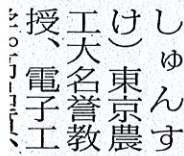 しゅんす
け）東京農
工大名誉教
授、電子工